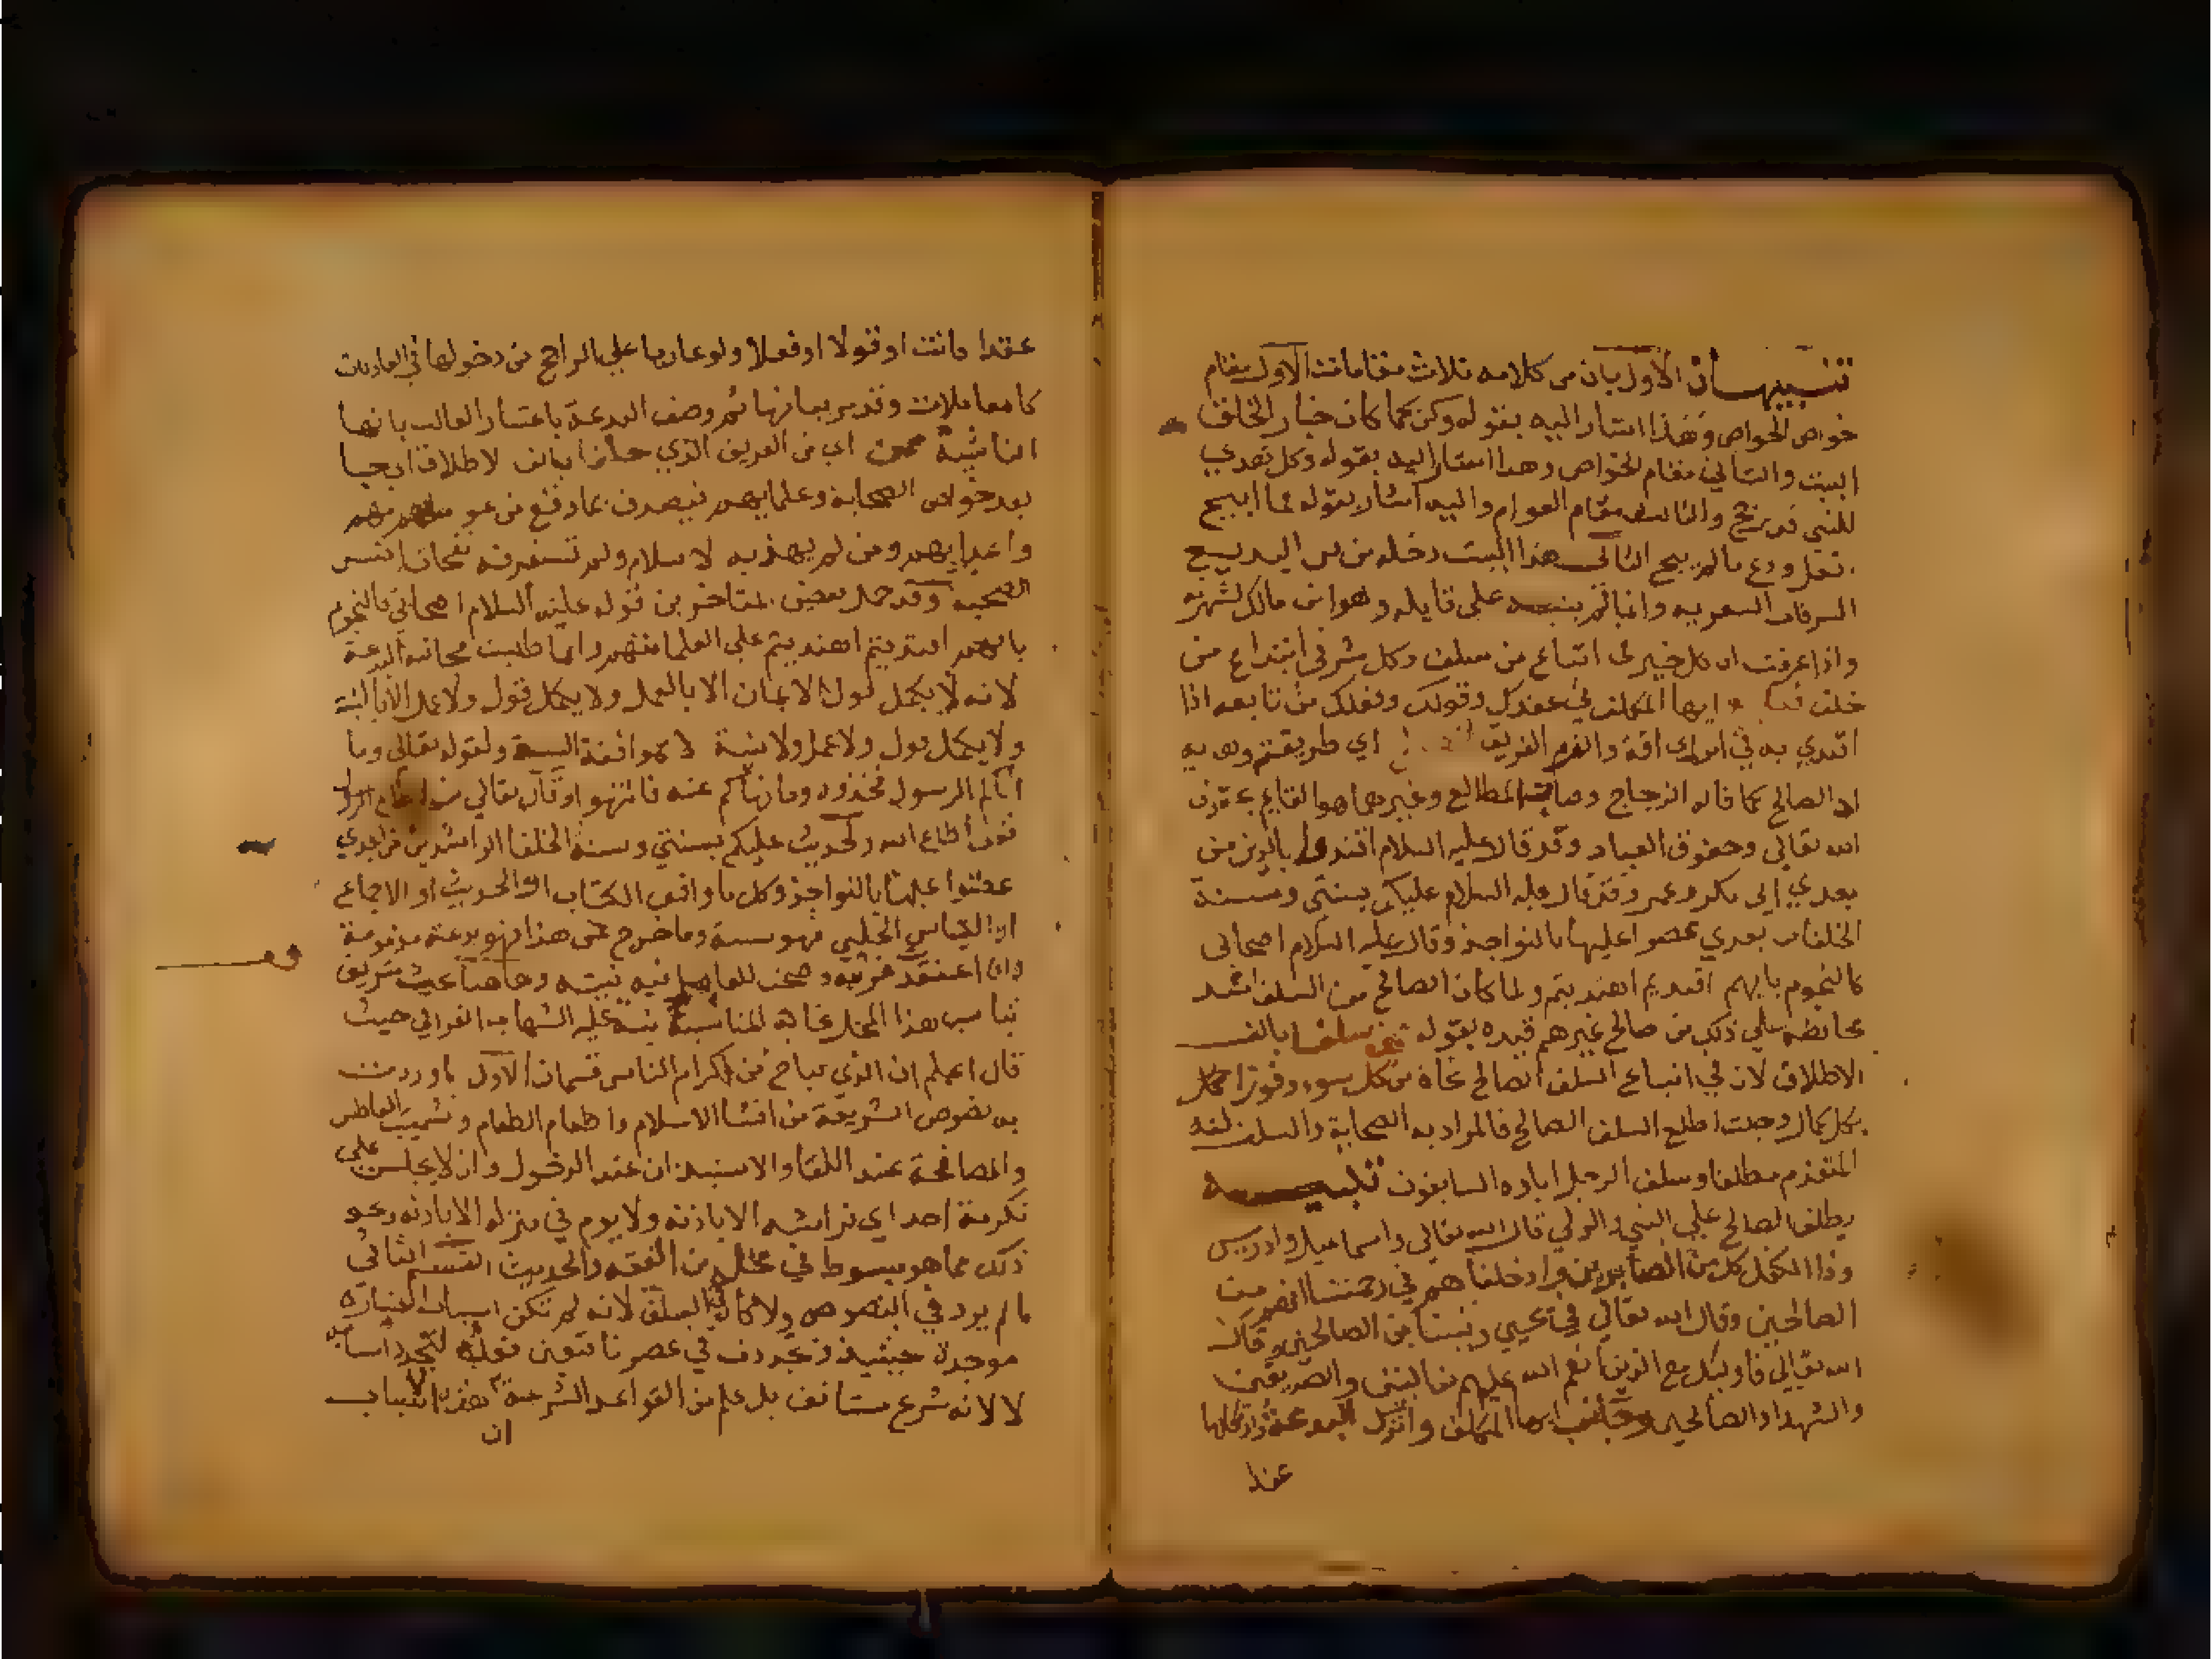 تنبيهان الاول بان من كلامه ثلاث مقامات الاول مقام
خواص الخواص وهذا اشار اليه بقوله وكن كما كان خيار الخلق
البيت والثاني مقام الخواص وهذا اشار اليه بقوله وكل هدي
للنبي قد رجح والثالث مقام العوام واليه اشار بقوله فما ابيح
افعل ودع ما لم يبح الثاني هذا البيت دخله من البديع
السرقات الشعريه وانما لم ينبه على قايله وهو ابن مالك لشهرته
واذا عرفت ان كل خير في اتباع من سلف وكل شر في ابتداع من
خلف ايها المكلف في عقدك وقولك وفعلك من تابعه اذا
اقتدي به في اي طريقتهم وهديه
ان الصالح كما قاله الزجاج وصاحب المطالع وغيرهما هو القايم بحقوق
الله تعالى وحقوق العباد وقد قال عليه السلام اقتدوا بالذين من
بعدي ابي بكر وعمر وقد قال عليه السلام عليكم بسنتي وسنة
الخلفا من بعدي عضوا عليها بالنواجذ وقال عليه السلام اصحابي
كالنجوم بايهم اقتديتم اهتديتم ولما كان الصالح من السلف اشد
محافظة علي ذلك من صالح غيرهم قيده بقوله ممن سلفا بالف
الاطلاق لان في اتباع السلف الصالح نجاة من كل سوء وفوزا
بكل كمال وحيث اطلع السلف الصالح فالمراد به الصحابة والسلف لغة
المتقدم مطلقا وسلف الرجل اباوه السابقون تنبيه
يطلق الصالح علي النبي والولي قال الله تعالى واسماعيل وادريس
وذا الكفل كل من الصابرين وادخلناهم في رحمتنا انهم من
الصالحين وقال الله تعالى في يحيي ونبيا من الصالحين وقال
الله تعالي فاوليك مع الذين انعم الله عليهم من النبيين والصديقين
والشهدا والصالحين وجانب ايها المكلف واترك البدعة
عقدا
عقدا كانت او قولا او فعلا ولو عاديا علي الراجح من دخولها في العاديات
كالمعاملات وتدبير ثم وصف البدعة باعتبار الغالب بانها
الناشية ممن اي من الفريق الذي خلفا بالف الاطلاق اي جا
بعد خواص الصحابة وعلمايهم فيصدق بما وقع من
واغبيايهم ومن لم يهذبه الاسلام ولم تستغرقه نفحات انفس
الصحبه وقد حمل بعض المتاخرين قوله عليه السلام اصحابي كالنجوم
بايهم اقتديتم اهتديتم علي العلما منهم وانما طلبت مجانبة البدعة
لانه لا يكمل قول الايمان الا بالعمل ولا يكمل قول ولا عمل الا بالنية
ولا يكمل قول ولا عمل ولا نية الا بموافقة السنة ولقوله تعالى وما
اتاكم الرسول فخذوه وما نهاكم عنه فانتهوا وقال تعالي من يطع الرسول
فقد اطاع الله والحديث عليكم بسنتي وسنة الخلفا الراشدين من بعدي
عضوا عليها بالنواجذ وكل ما وافق الكتاب او الحديث او الاجماع
او القياس الجلي فهو سنة وما خرج عن هذا فهو بدعة مذمومة
وان اعتقد قربته وصحت للعامل فيه نيته وهاهنا بحث شريف
يناسب هذا المحل غاية المناسبة نبه عليه الشهاب القرافي حيث
قال اعلم ان الذي يباح من اكرام الناس قسمان الاول ما وردت
به نصوص الشريعة من افشا الاسلام واطعام الطعام وتشميت العاطس
والمصافحة عند اللقا والاستيذان عند الدخول وان لا يجلس علي
تكرمة احد اي فراشه الا باذنه ولا يوم في منزله الا باذنه ونحو
ذلك مما هو مبسوط في محله من الفقه والحديث القسم الثاني
ما لم يرد في النصوص ولا كان في السلف لانه لم تكن اسباب اعتباره
موجودة حينيذ وتجددت في عصرنا فتعين فعله لتجدد اسبابه
لا لانه شرع مستانف بل علم من القواعد الشرعية ان هذه الاسباب
ان